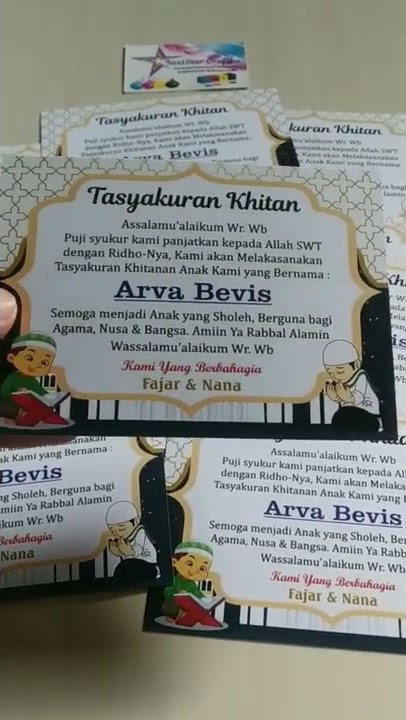 NextStar Grafika
Tasyakuran Khitan
Assalamu'alaikum Wr. Wb
Puji syukur kami panjatkan kepada Allah SWT
dengan Ridho-Nya, Kami akan Melakasanakan
Tasyakuran Khitanan Anak Kami yang Bernama :
Arva Bevis
kuran Khitan
Tasyakuran Khitan
Assalamu'alaikum Wr. Wb
Puji syukur kami panjatkan kepada Allah SWT
dengan Ridho-Nya, Kami akan Melakasanakan
Tasyakuran Khitanan Anak Kami yang Bernama :
Arva Bevis
Semoga menjadi Anak yang Sholeh, Berguna bagi
Agama, Nusa & Bangsa. Amiin Ya Rabbal Alamin
Wassalamu'alaikum Wr. Wb
Kami Yang Berbahagia
Fajar & Nana
ak Kami yang Bernama :
Bevis
yang Sholeh, Berguna bagi
angsa. Amiin Ya Rabbal Alamin
ikum Wr. Wb
Berbahagia
Nana
Assalamu'alaikum Wr. Wb
Puji syukur kami panjatkan kepada Al
dengan Ridho-Nya, Kami akan Melaka
Tasyakuran Khitanan Anak Kami yang
Arva Bevis
Semoga menjadi Anak yang Sholeh, Ber
Agama, Nusa & Bangsa. Amiin Ya Rabb
Wassalamu'alaikum Wr. Wb
Kami Yang Berbahagia
Fajar & Nana